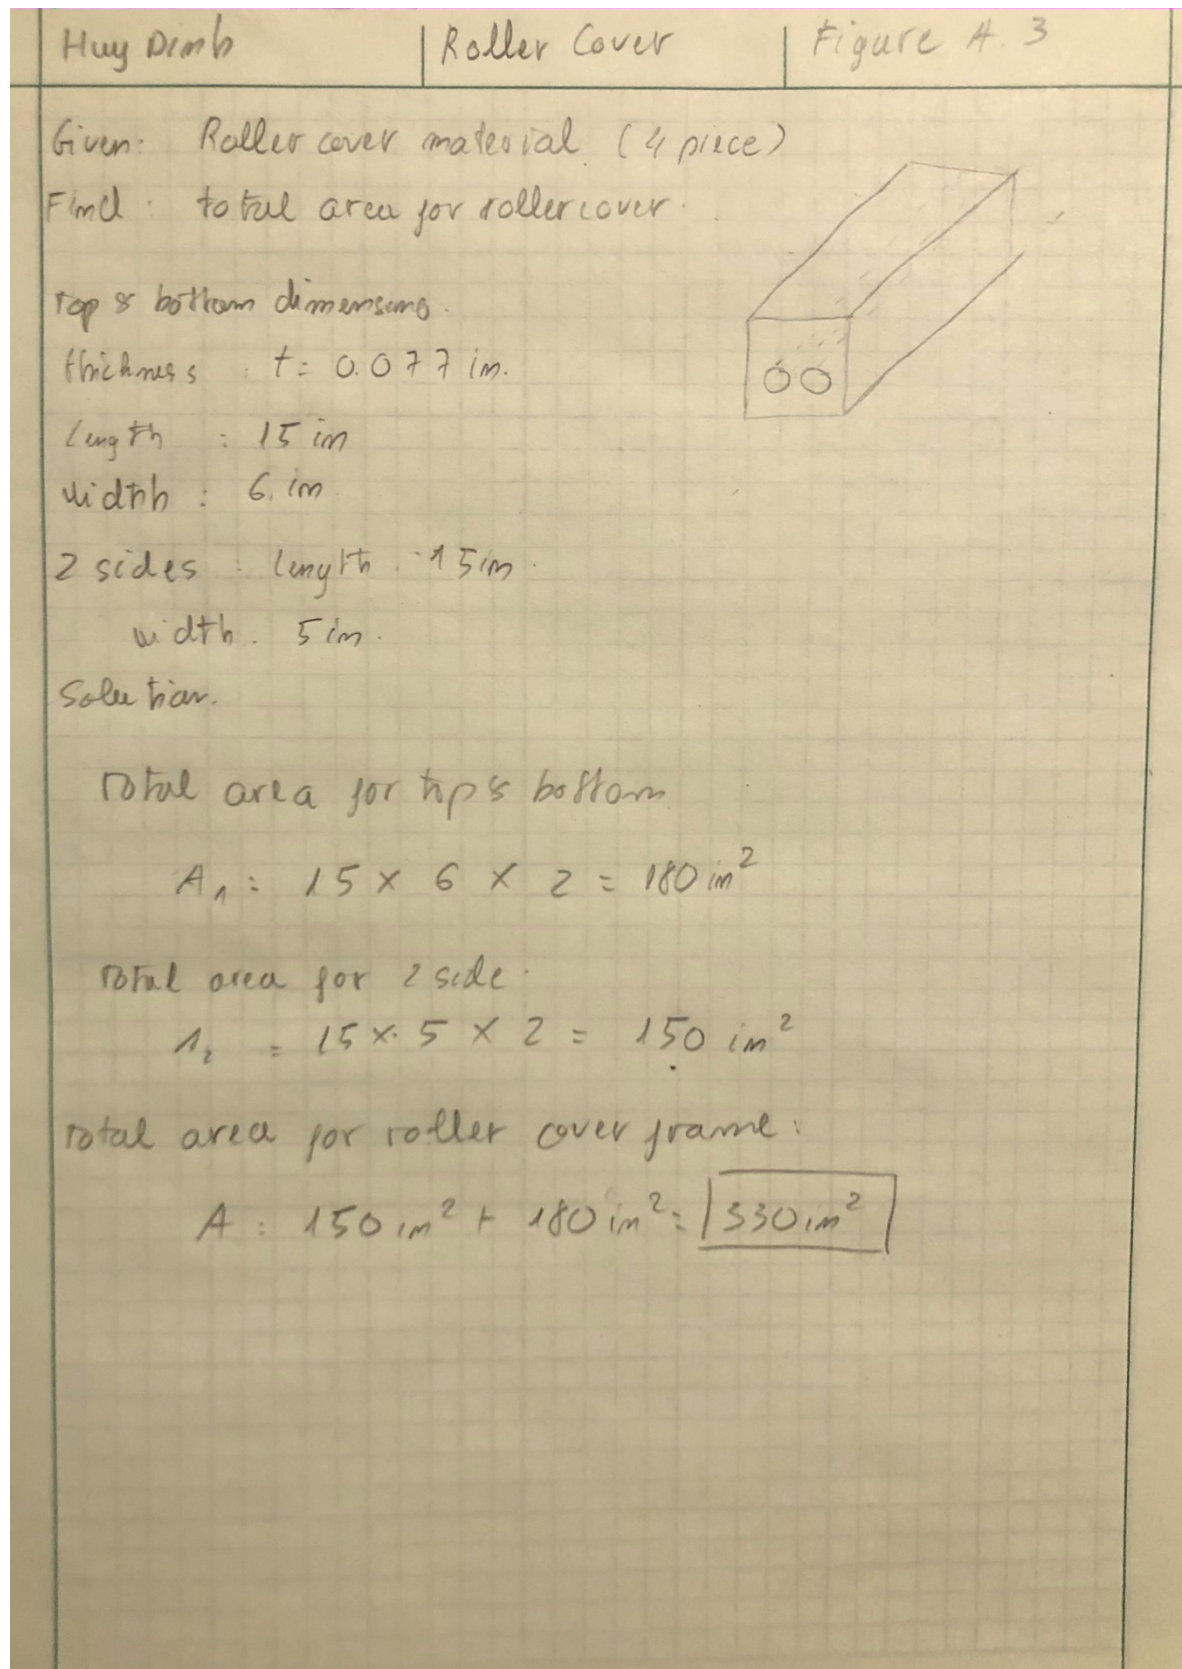 Huy Dinh
Roller Cover
Figure A.3
Given: Roller cover material (4 piece)
Find: total area for roller cover.
Top & bottom dimensions.
thickness : t = 0.077 in.
Length : 15 in
Width : 6 in
2 sides : length : 15 in.
width. 5 in.
Solution.
Total area for top & bottom
A₁ = 15 x 6 x 2 = 180 in²
Total area for 2 side.
A₂ = 15 x 5 x 2 = 150 in²
Total area for roller cover frame:
A = 150 in² + 180 in² = 330 in²